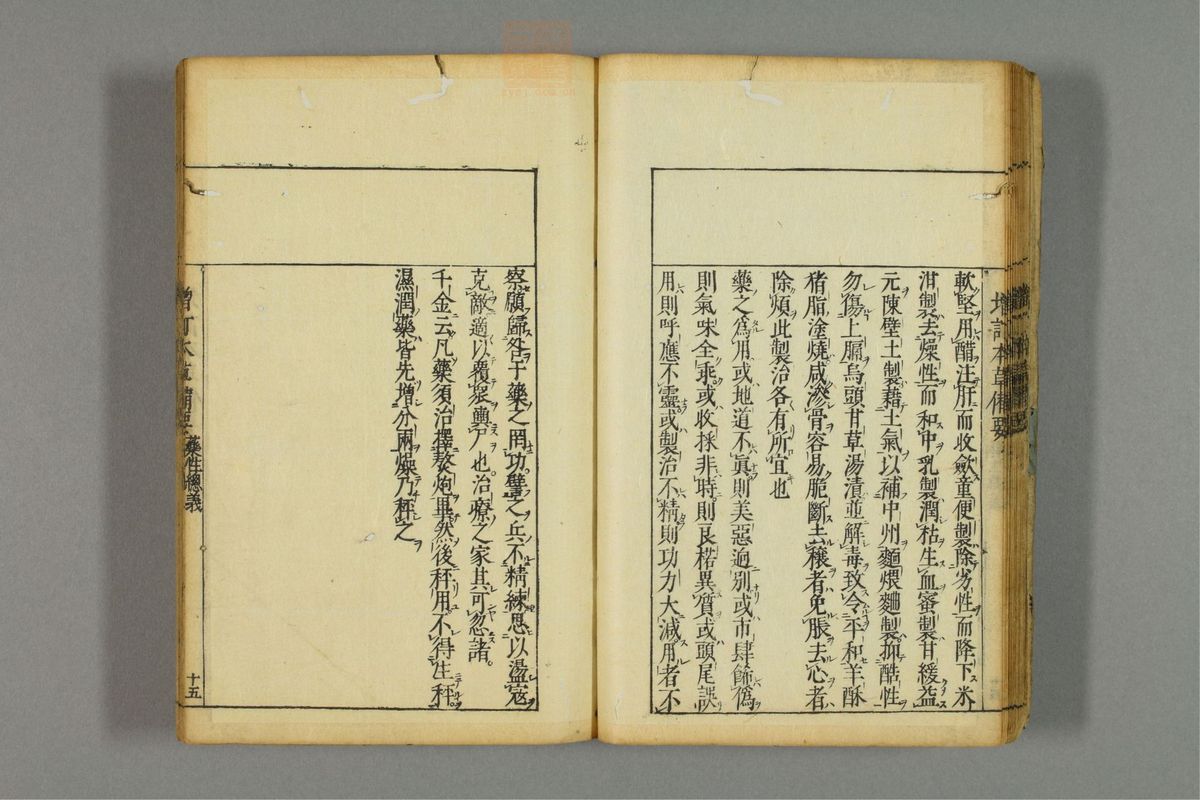 增訂本草備要
軟堅用醋注肝而收斂童便製除劣性而降下米
泔製去燥性而和中乳製潤枯生血蜜製甘緩益
元陳壁土製藉土氣以補中州麵煨麯製抑酷性
勿傷上膈烏頭甘草湯漬並解毒致令平和羊酥
猪脂塗燒咸滲骨容易脆斷去穰者免脹去心者
除煩此製治各有所宜也
藥之爲用或地道不眞則美惡逈别或市肆飾僞
則氣味全乖或收採非時則良楛異質或頭尾誤
用則呼應不靈或製治不精則功力大減用者不
察顧歸咎于藥之罔功譬之兵不精練思以盪寇
克敵適以覆衆輿尸也治療之家其可忽諸
千金云凡藥須治擇熬炮畢然後秤用不得生秤
濕潤藥皆先增分兩燥乃秤之
增訂本草備要
藥性總義
十五